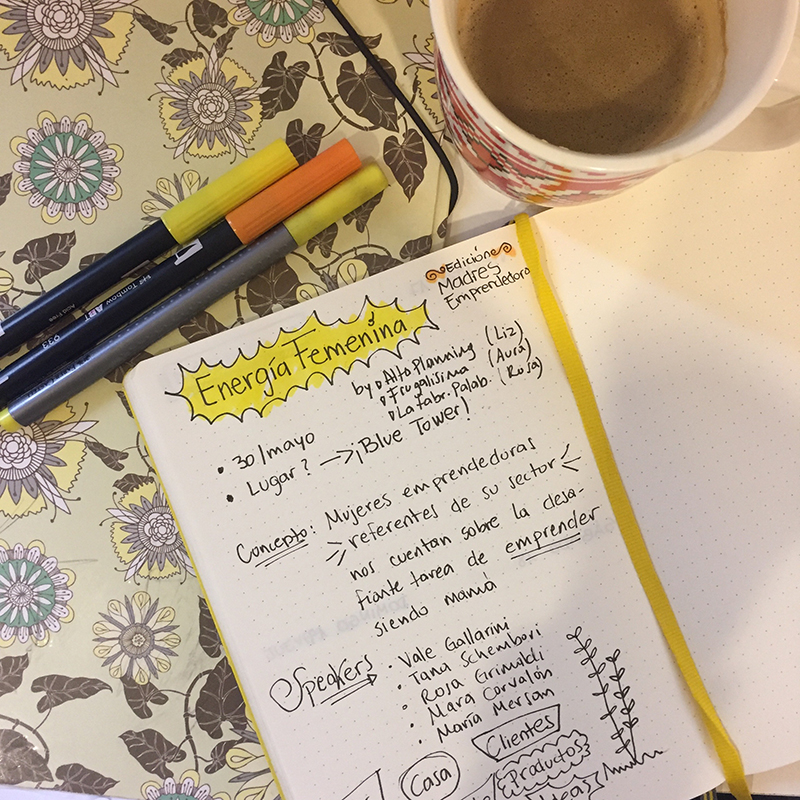 Edición
Madres
Emprendedora
Energía Femenina
by • Alto Planning (Liz)
• Frugalísima (Aura)
• La Fabr. Palab. (Rosa)
• 30/mayo
• Lugar? → ¡Blue Tower!
Concepto: Mujeres emprendedoras
referentes de su sector
nos cuentan sobre la desa-
fiante tarea de emprender
siendo mamá
Speakers
• Vale Gallarini
• Tana Schembori
• Rosa Grimaldi
• Mara Corvalán
• María Mersan
Clientes
Casa
Productos
Tombow
933
Acid Free